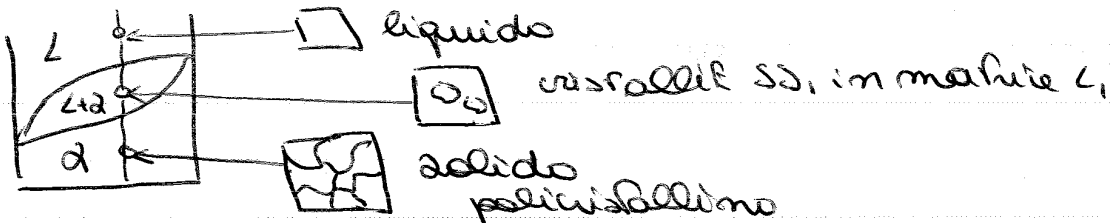 L
liquido
L+α
cristalliti SS, in matrice L,
α
solido
policristallino